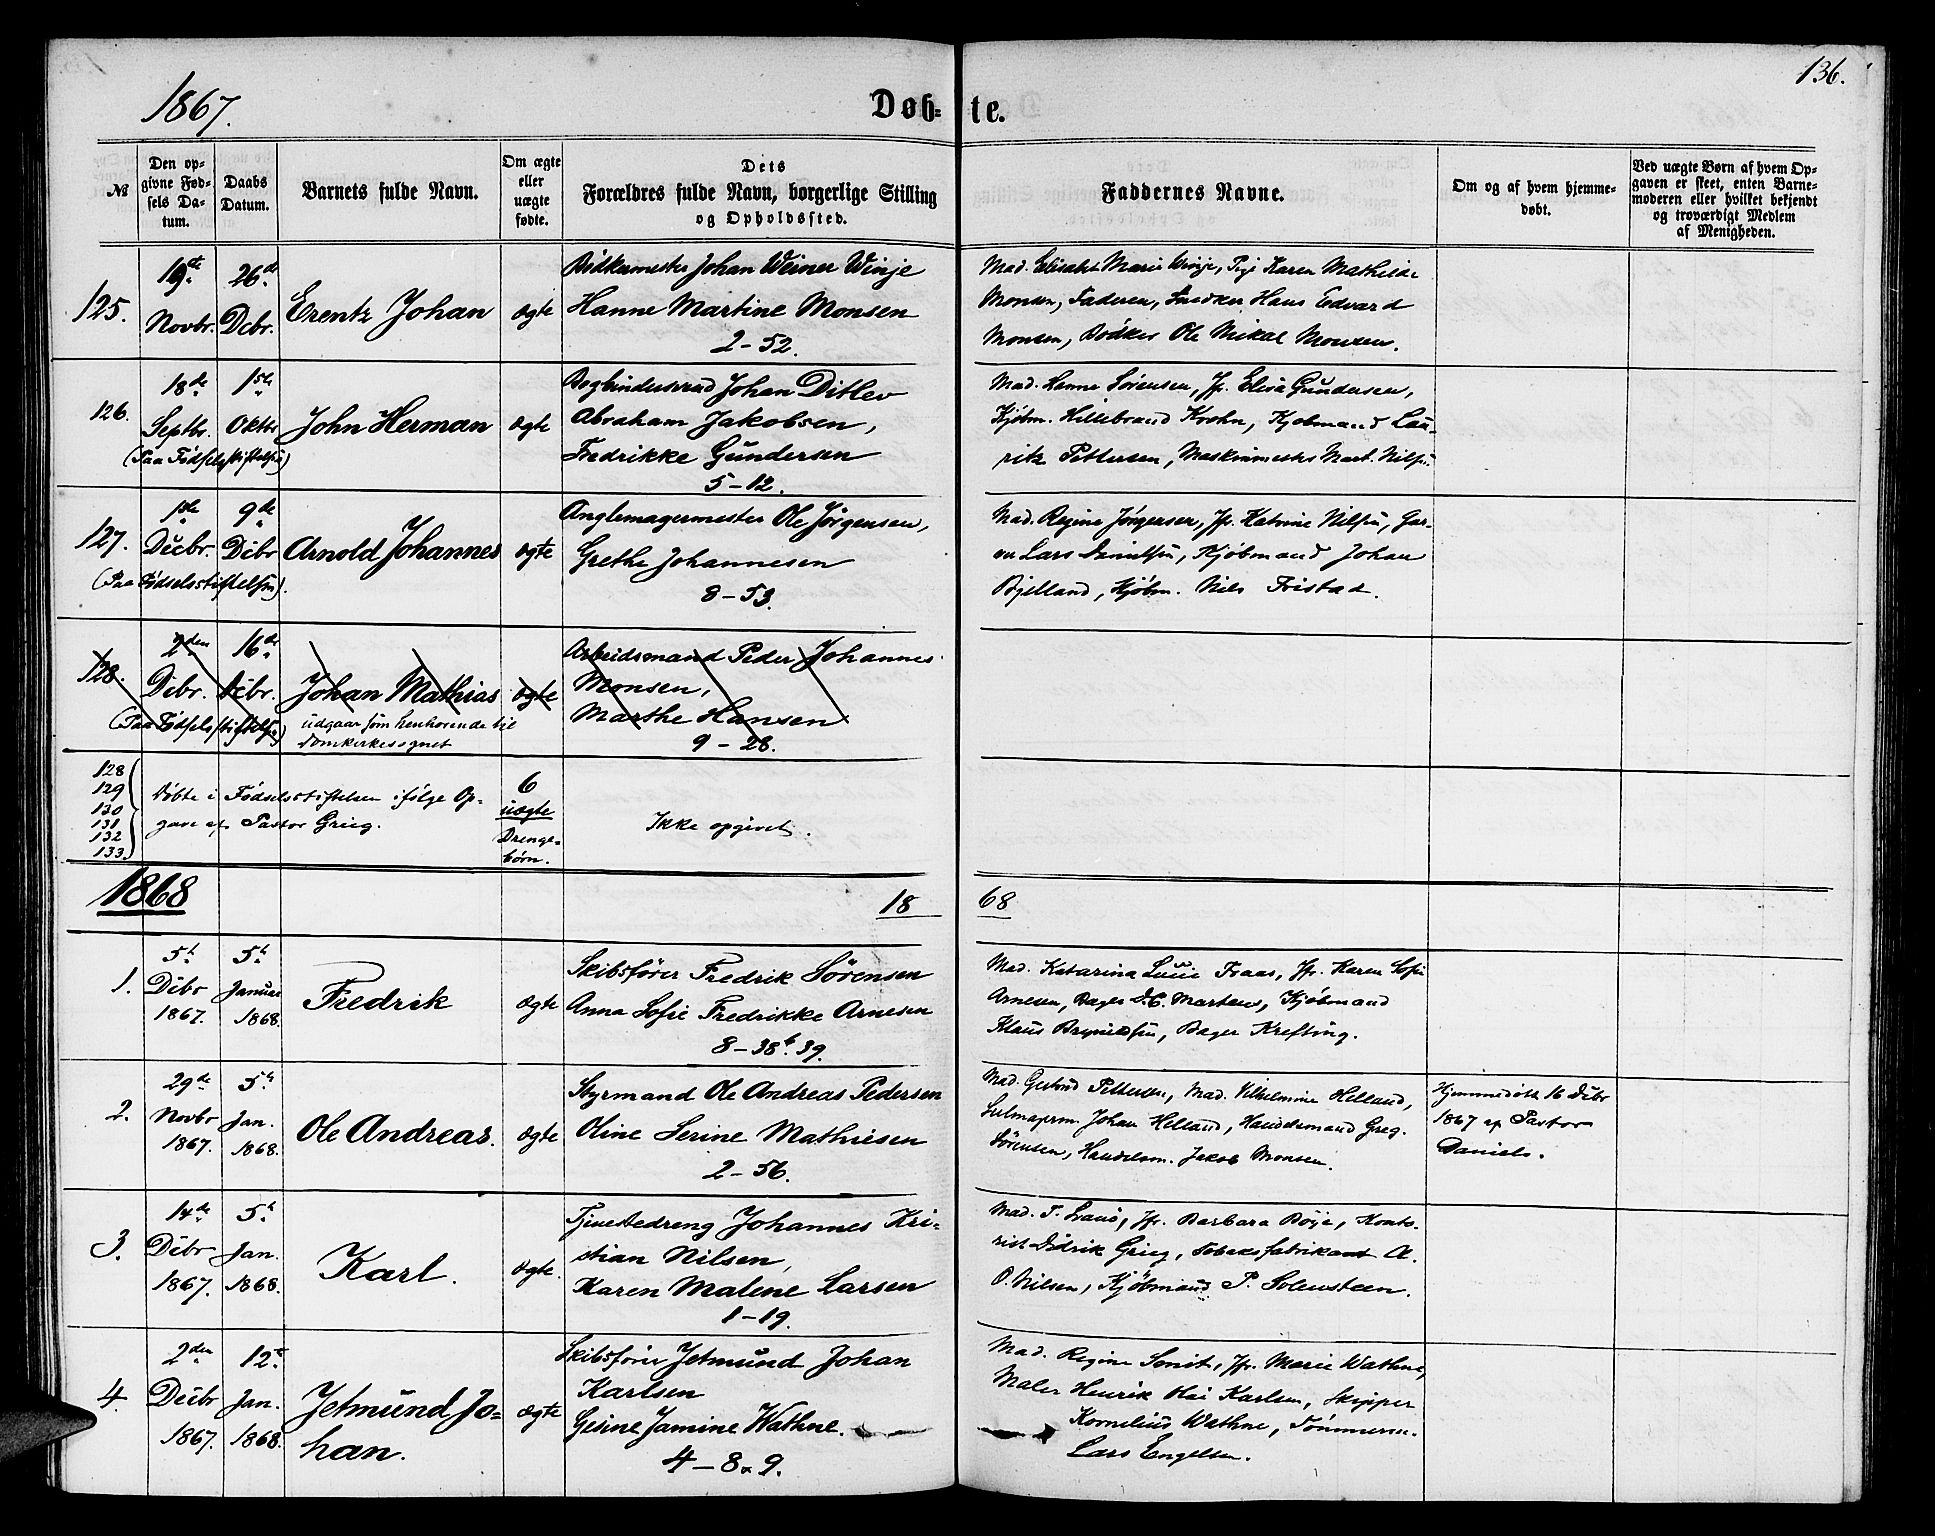 136.
1867.
Døb- te.
№
Den op-
givne Fød-
sels Da-
tum.
Daabs
Datum.
Barnets fulde Navn.
Om ægte
eller
uægte
fødte.
Dets
Forældres fulde Navn, borgerlige Stilling
og Opholdssted.
Faddernes Navne.
Om og af hvem hjemme-
døbt.
Ved uægte Børn af hvem Op-
gaven er skeet, enten Barne-
moderen eller hvilket bekjendt
og troværdigt Medlem
af Menigheden.
125.
19de
Novbr.
26de
Dcbr.
Erentz Johan
ægte
Johan Werner Winje
Hanne Martine Monsen
2-52.
Mad. Elisabet Marie Winje, Pige Karen Mathilde
Monsen, Faderen, Snedker Hans Edvard
Monsen, Bødker Ole Mikal Monsen.
126.
18de
Septbr.
1ste
Oktbr
(Paa Fødselsstiftelsen)
John Herman
ægte
Bogbindersvend Johan Ditlev
Abraham Jakobsen,
Fredrikke Gundersen
5-12.
Mad. Hanne Sørensen, Jfr. Elisa Gundersen,
Kjøbm. Hillebrand Krohn, Kjøbmand Lau-
ritz Pettersen, Maskinmester Mart. Nilsen.
127.
1ste
Decbr.
9de
Dcbr
(Paa Fødselsstiftelsen).
Arnold Johannes
ægte
Ole Jørgensen,
Grethe Johannesen
8-53.
Mad. Regine Jørgensen, Jfr. Katrine Nilsen, Gar-
ver Lars Danielsen, Kjøbmand Johan
Bjelland, Kjøbm. Nils Tristad.
128.
2den
Dcbr.
16de
Dcbr.
(Paa Fødselsstiftelsen)
Johan Mathias
udgaar som henhørende til
Domkirkesognet
ægte
Arbeidsmand Peder Johannes
Monsen,
Marthe Hansen
9-28.
128
129
130
131
132
133.
Døbte i Fødselsstiftelsen ifølge Op-
gave af Pastor Grieg.
6
uægte
Drenge-
børn.
Ikke opgivet.
1868
18 68
1.
5te
Dcbr
1867.
5te
Januar
1868.
Fredrik
ægte
Skibsfører Fredrik Sørensen
Anna Sofie Fredrikke Arnesen
8-38b.39.
Mad. Katarina Lucie Traas, Jfr. Karen Sofie
Arnesen, Bager D.C. Martens, Kjøbmand
Klaus, Bager Krefting.
2.
29de
Novbr
1867.
5te
Jan.
1868.
Ole Andreas.
ægte
Styrmand Ole Andreas Pedersen
Oline Serine Mathiesen
2-56.
Mad. Gertrud Pettersen, Mad. Vilhelmine Helland,
Johan Helland, Handelsmand Greg.
Sørensen, Handelsm. Jakob Monsen.
Hjemmedøbt 16 Dcbr
1867 af Pastor
Daniels.
3.
14de
Dcbr
1867.
5te
Jan.
1868.
Karl.
ægte.
Tjenestedreng Johannes Kri-
stian Nilsen,
Karen Malene Larsen
1-19.
Mad. T., Jfr. Barbara Bøje, Konto-
rist Didrik Grieg, Tobaksfabrikant A.
O. Nilsen, Kjøbmand P. Solensteen.
4.
2den
Decbr
1867.
12te
Jan.
1868.
Jetmund Jo-
han.
ægte
Skibsfører Jetmund Johan
Karlsen
Gesine Jamine Wathne.
4-8&9.
Mad. Regine Smit, Jfr. Marie Wathne,
Maler Henrik Karlsen, Skipper
Kornelius Wathne, Tømmerm.
Lars Engelsen.